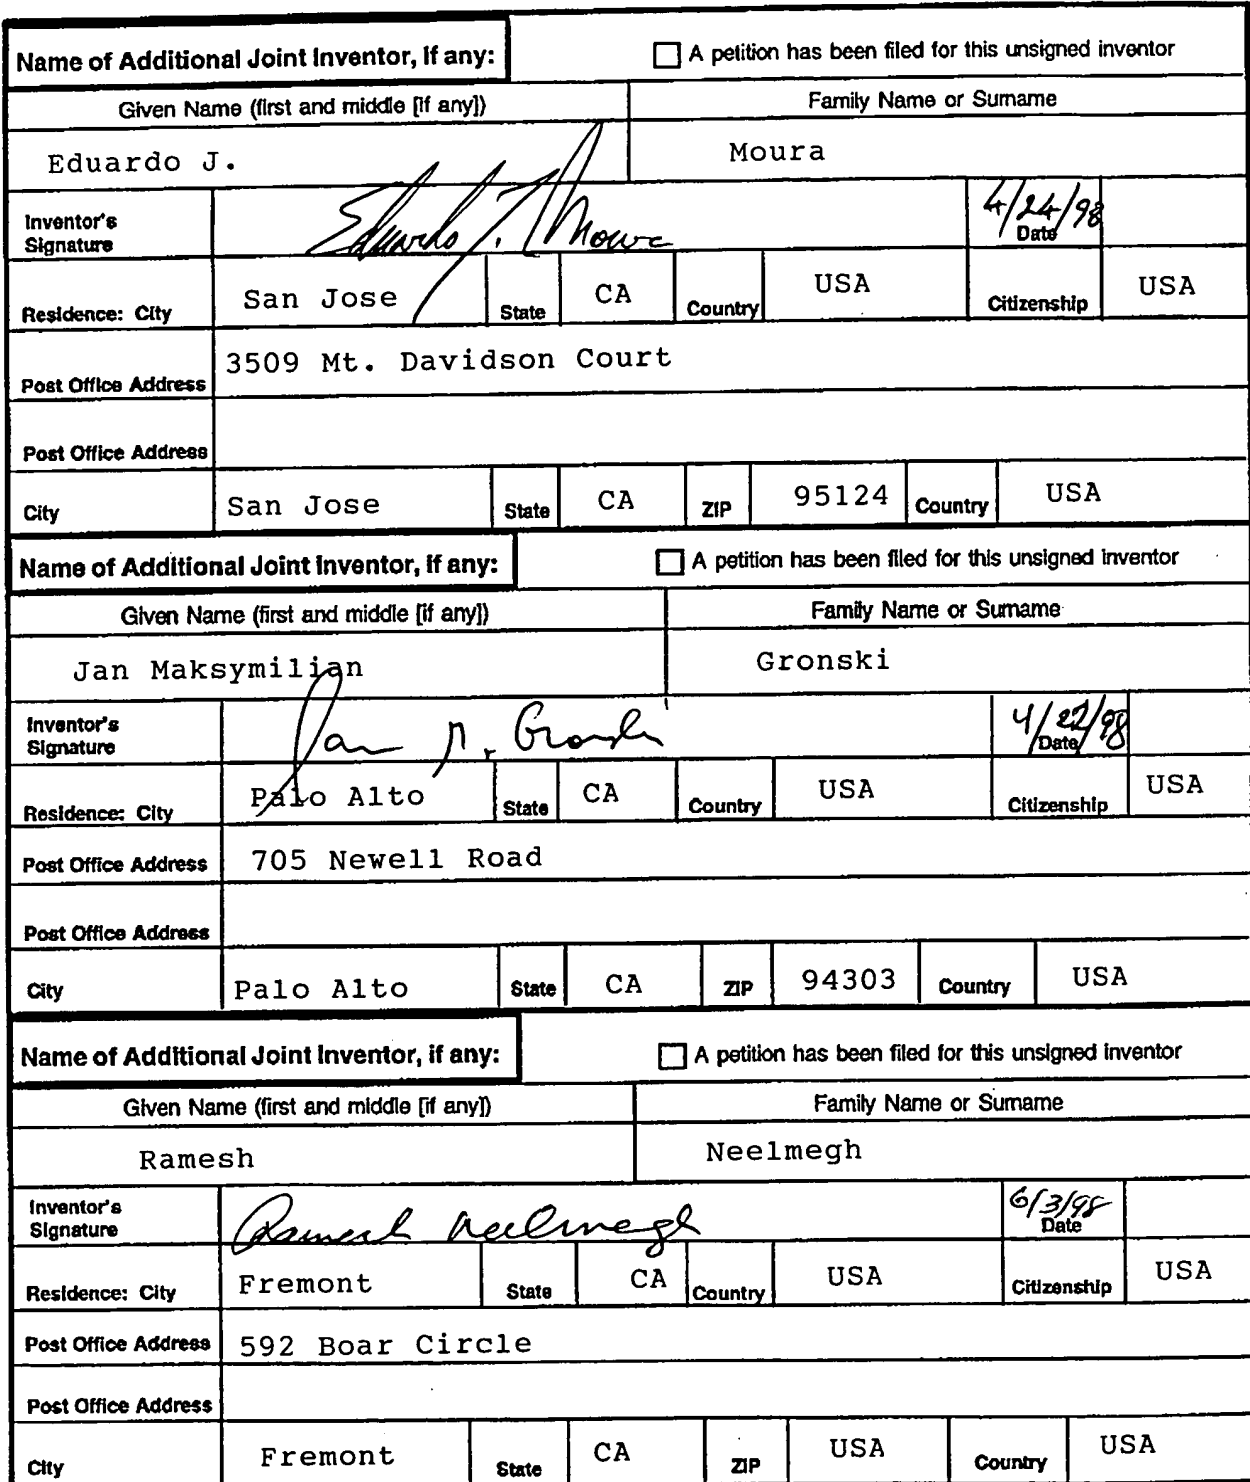 Name of Additional Joint Inventor, if any: A petition has been filed for this unsigned inventor
Given Name (first and middle [if any]) Family Name or Surname
Eduardo J. Moura
Inventor's Signature Eduardo J. Moura 4/24/98 Date
Residence: City San Jose State CA Country USA Citizenship USA
Post Office Address 3509 Mt. Davidson Court
Post Office Address
City San Jose State CA ZIP 95124 Country USA
Name of Additional Joint Inventor, if any: A petition has been filed for this unsigned inventor
Given Name (first and middle [if any]) Family Name or Surname
Jan Maksymilian Gronski
Inventor's Signature Jan M. Gronski 4/22/98 Date
Residence: City Palo Alto State CA Country USA Citizenship USA
Post Office Address 705 Newell Road
Post Office Address
City Palo Alto State CA ZIP 94303 Country USA
Name of Additional Joint Inventor, if any: A petition has been filed for this unsigned inventor
Given Name (first and middle [if any]) Family Name or Surname
Ramesh Neelmegh
Inventor's Signature Ramesh Neelmegh 6/3/98 Date
Residence: City Fremont State CA Country USA Citizenship USA
Post Office Address 592 Boar Circle
Post Office Address
City Fremont State CA ZIP USA Country USA